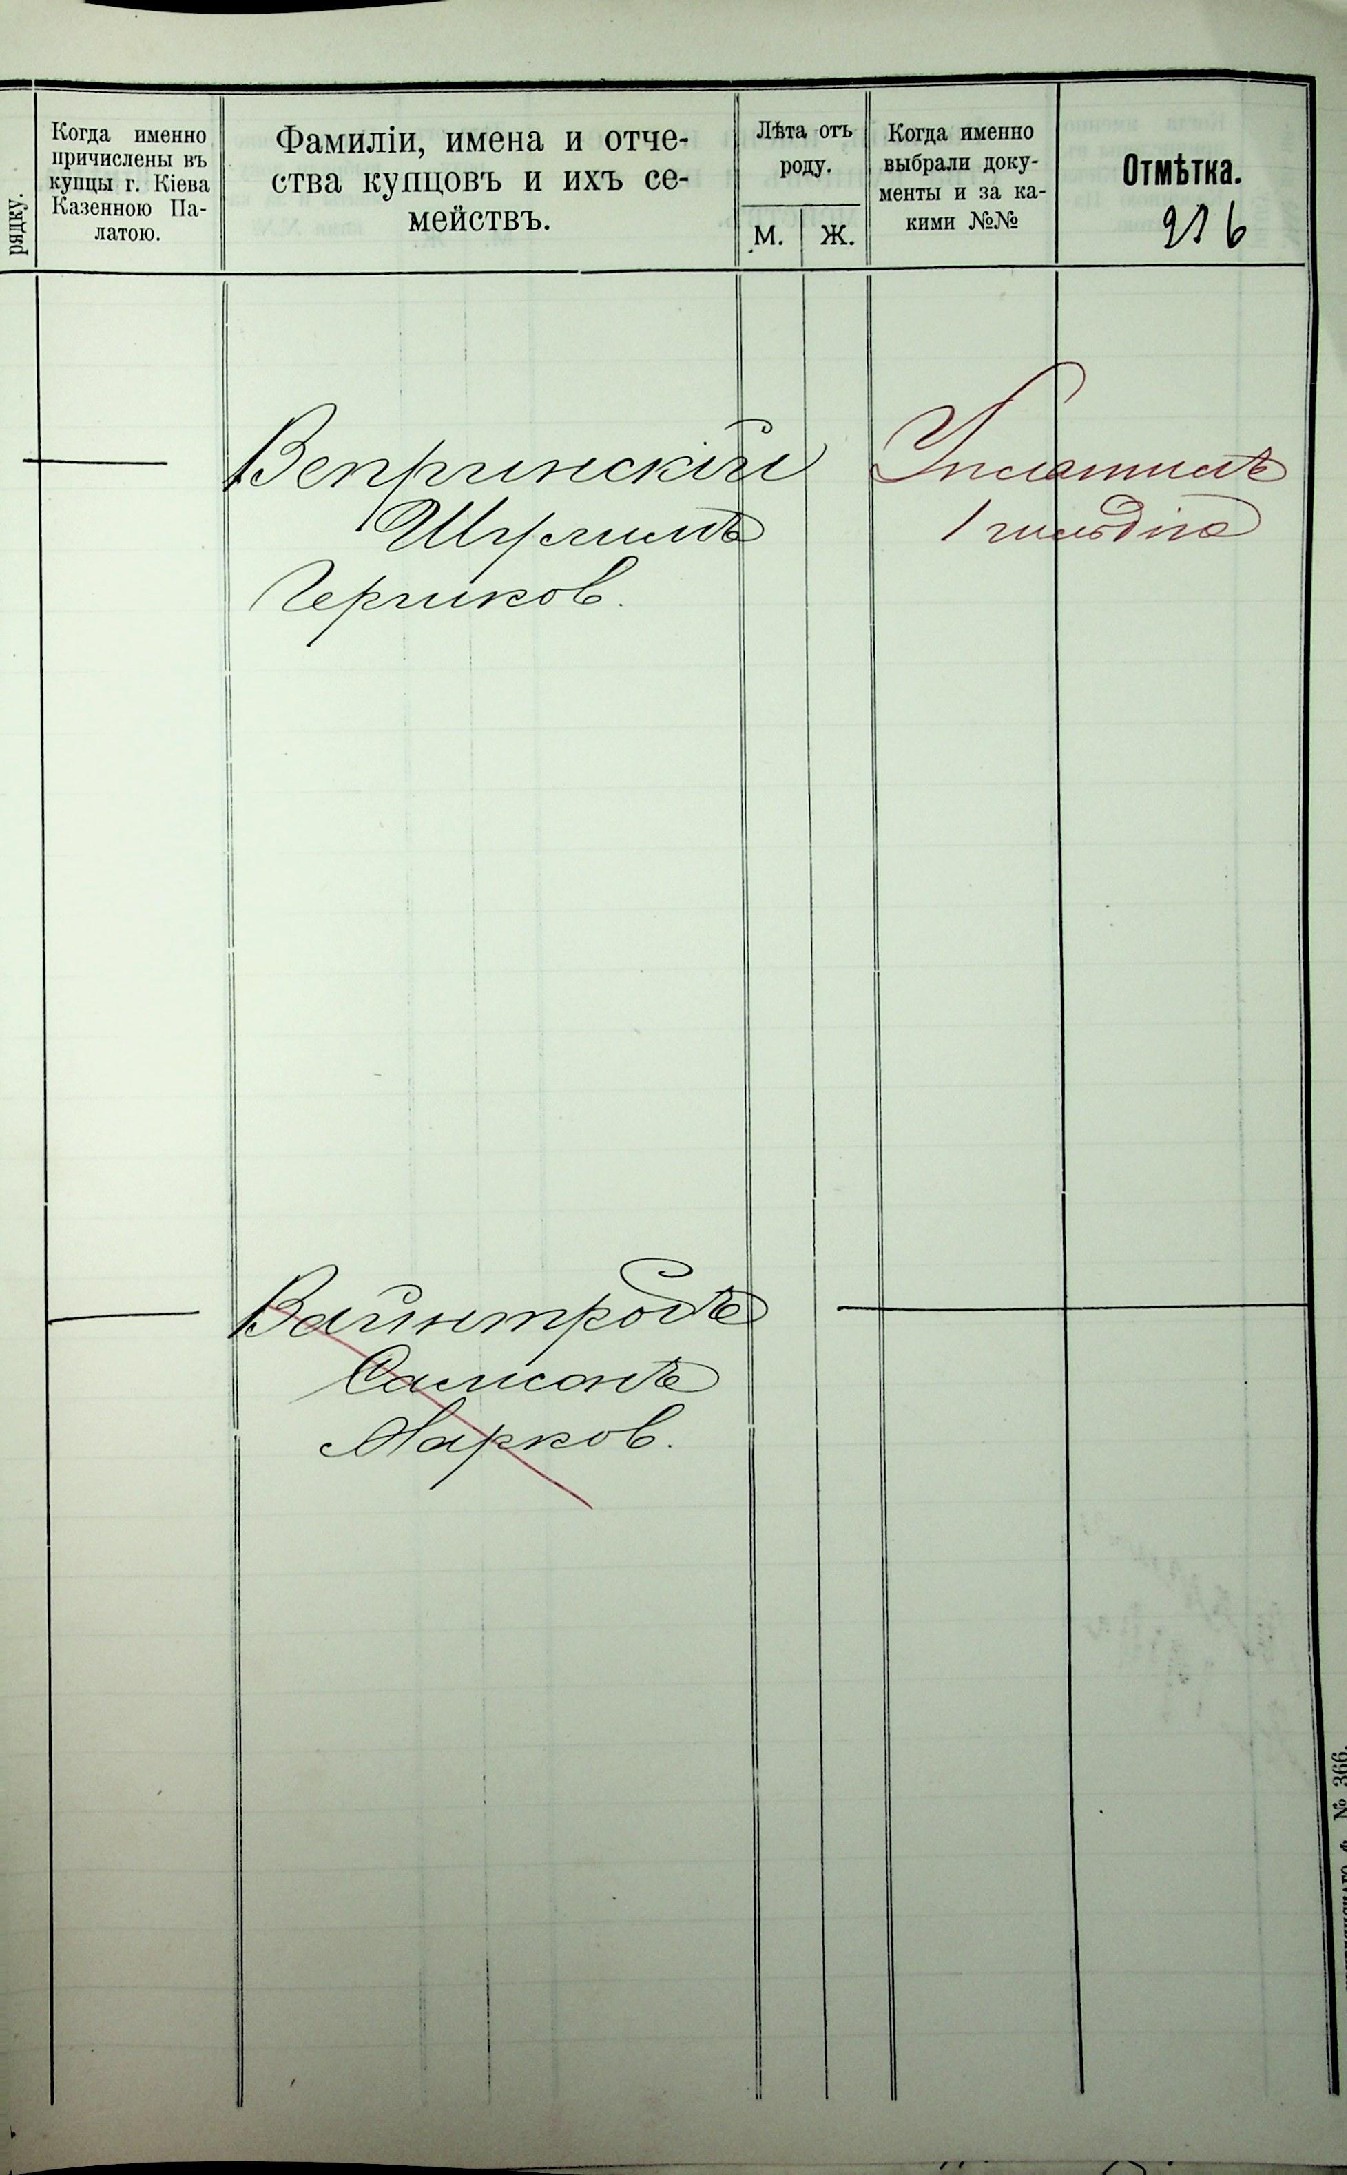 рядку.
Когда именно
причислены въ
купцы г. Кіева
Казенною Па-
латою.
Фамиліи, имена и отче-
ства купцовъ и ихъ се-
мействъ.
Лѣта отъ
роду.
М. Ж.
Когда именно
выбрали доку-
менты и за ка-
кими №№
Отмѣтка.
216
Вепринскій
Шулимъ
Берчиков.
Уплатилъ
1 гильдію
Вайнтробъ
Самсонъ
Марков.
№ 366.